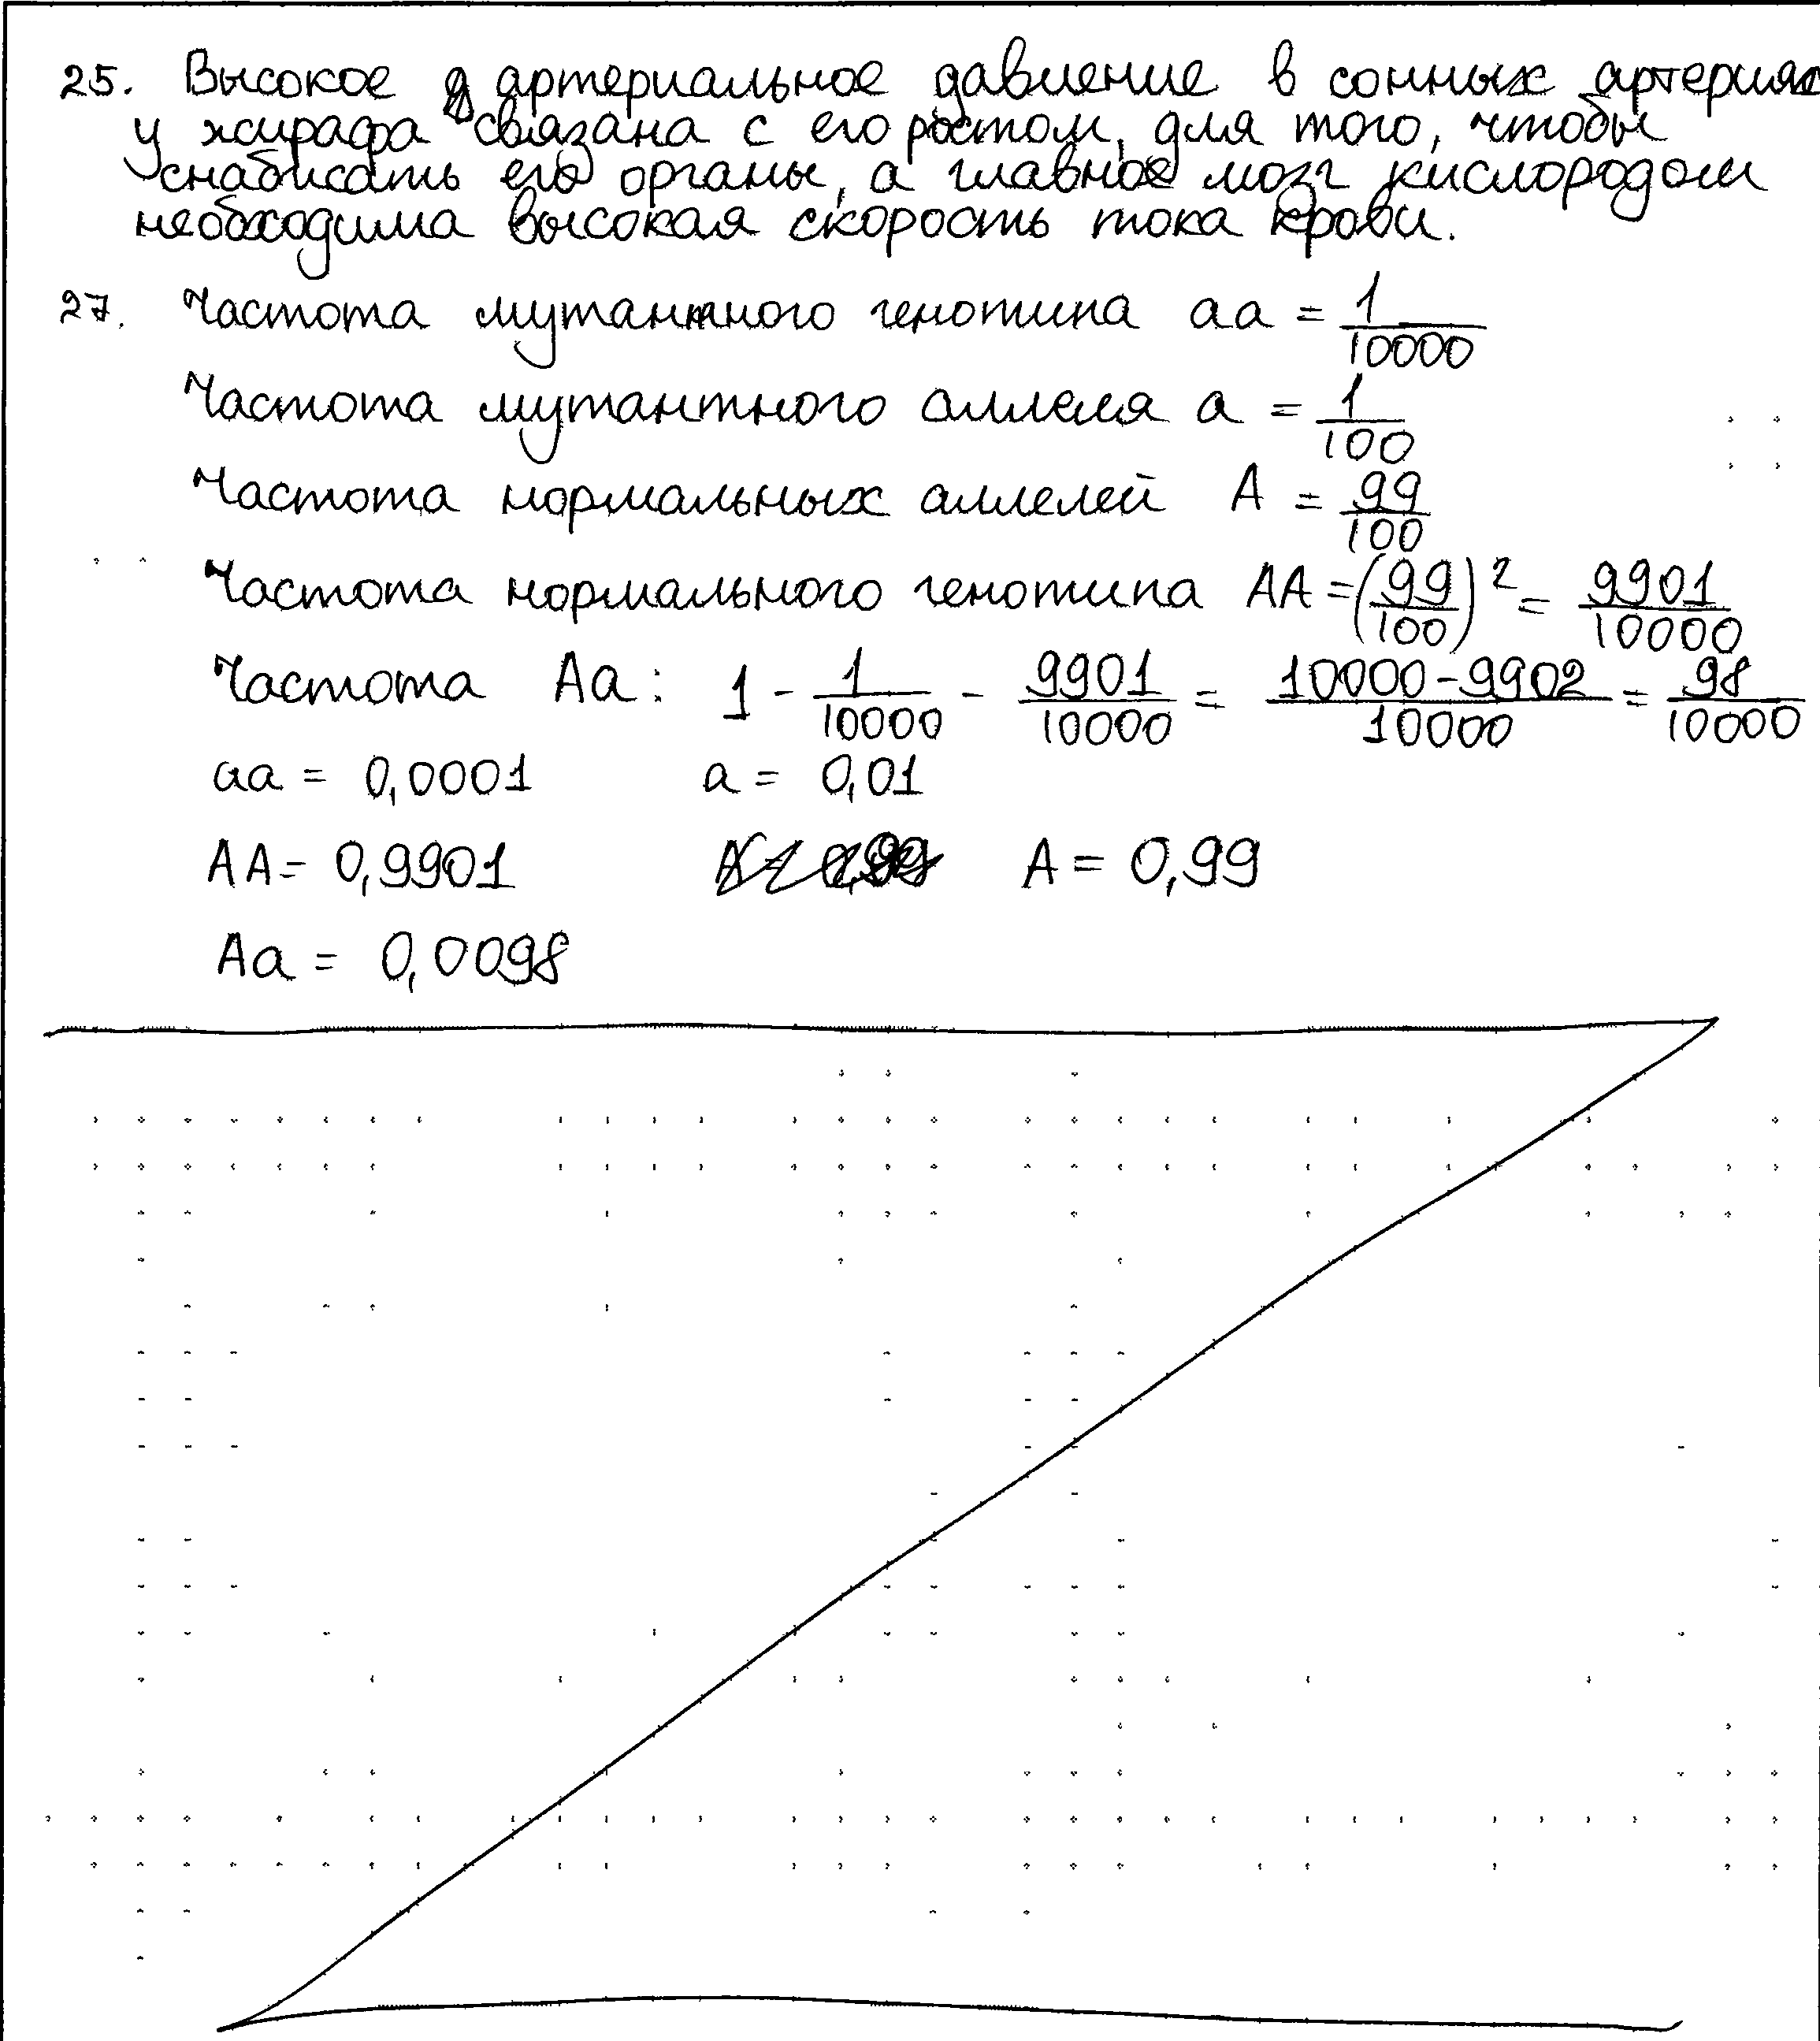 25. Высокое артериальное давление в сонных артериях
у жирафа связана с его ростом, для того, чтобы
снабжать его органы, а главное мозг кислородом
необходима высокая скорость тока крови.
27. Частота мутантного генотипа aa = 1/10000
Частота мутантного аллеля a = 1/100
Частота нормальных аллелей A = 99/100
Частота нормального генотипа AA = (99/100)² = 9901/10000
Частота Aa: 1 - 1/10000 - 9901/10000 = 10000-9902/10000 = 98/10000
aa = 0,0001 a = 0,01
AA = 0,9901 A = 0,99
Aa = 0,0098